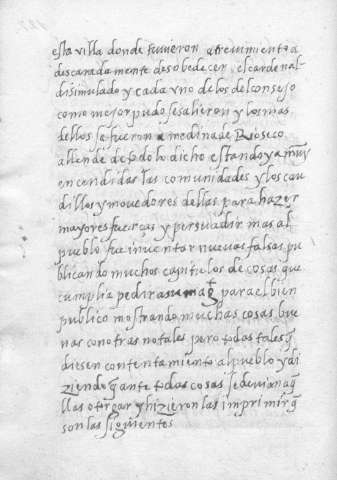 esta villa donde tuvieron atrevimiento a
descaradamente desobedecer el cardenal
disimulado y cada uno de los del consejo
como mejor pudo se salieron y los mas
dellos se fueron a medina de Rioseco
allende de todo lo dicho estando ya muy
encendidas las comunidades y los cau
dillos y movedores dellas para hazer
mayores fuerças y persuadir mas al
pueblo fue inventar nuevas falsas pu
blicando muchos capitulos de cosas que
cumplia pedir a su magt para el bien
publico mostrando muchas cosas bue
nas con otras no tales pero todas tales q̃
diesen contentamiento al pueblo y di
ziendo q̃ ante todas cosas se devian aq̃
llas otorgar y hizieron las imprimir q̃
son las siguientes